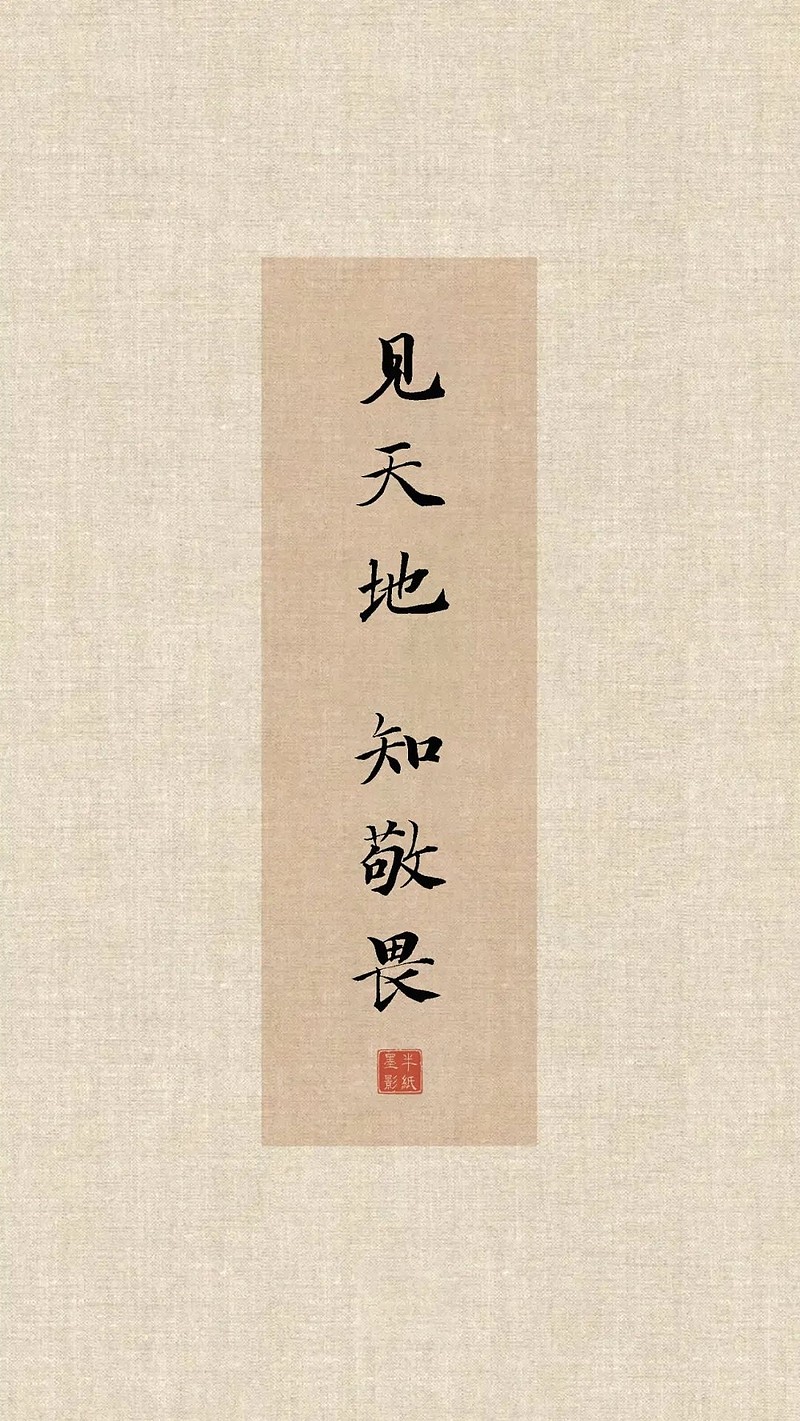 见天地 知敬畏
半纸
墨影